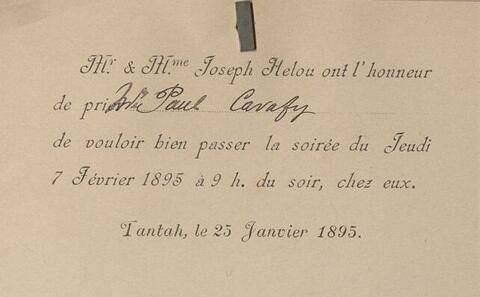 Mr. & Mme Joseph Helou ont l'honneur
de prier Paul Cavafy
de vouloir bien passer la soirée du Jeudi
7 Février 1895 à 9 h. du soir, chez eux.
Tantah, le 25 Janvier 1895.